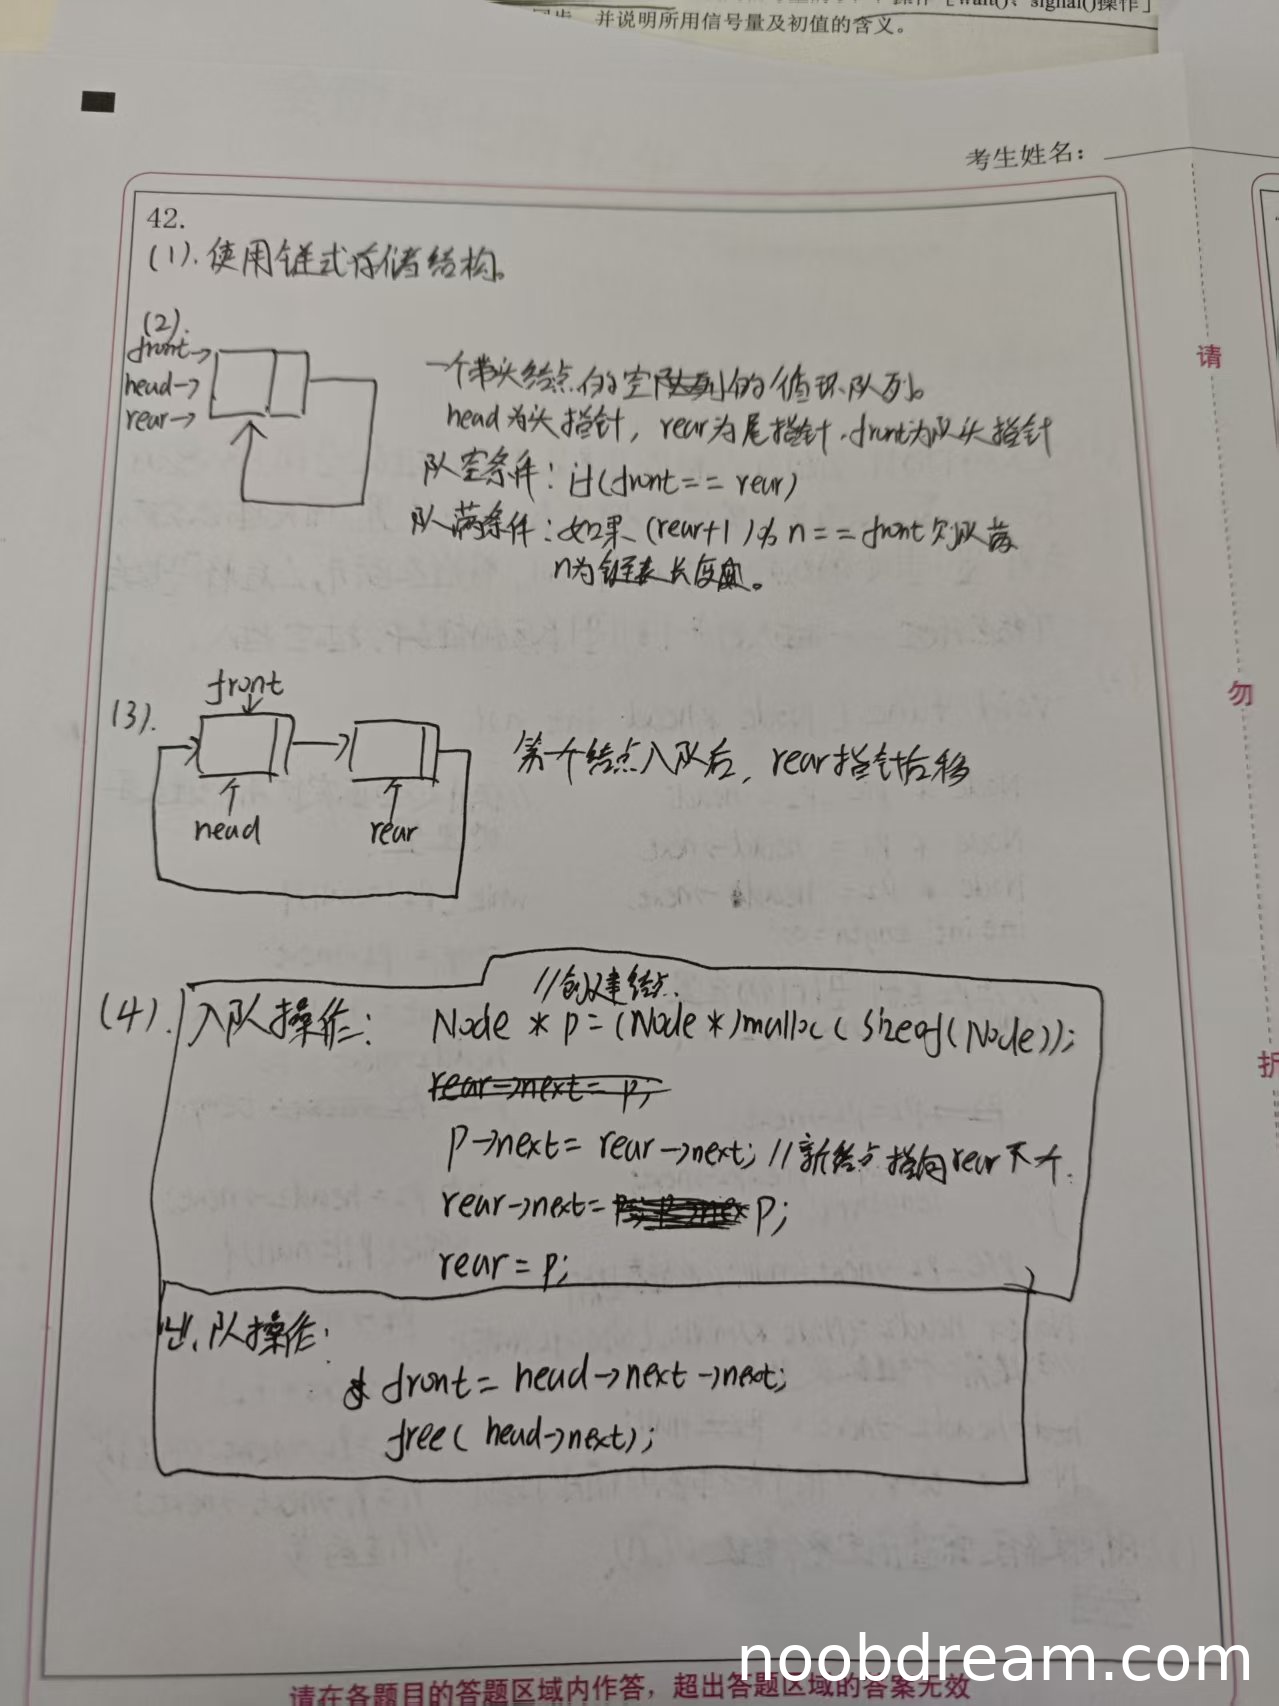 signal()操作]
并说明所用信号量及初值的含义。
考生姓名:
42.
(1).使用链式存储结构。
(2).
front→
head→
rear→
一个带头结点的空的循环队列。
head为头指针，rear为尾指针.front为队头指针
队空条件: if(front== rear)
队满条件:如果(rear+1)% n == front 则队满
n为链表长度。
(3).
front
head
rear
第一个结点入队后，rear指针后移
(4).
//创建结点.
入队操作: Node * p = (Node *)malloc( sizeof(Node));
rear→next= p;
p→next= rear→next; //新结点指向rear下一个.
rear→next= p;
rear = p;
出队操作:
front= head→next→next;
free( head→next);
请
勿
折
请在各题目的答题区域内作答，超出答题区域的答案无效
noobdream.com